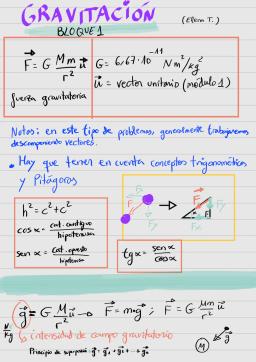 GRAVITACIÓN
(Elena T.)
BLOQUE 1
F = G Mm/r² u
G = 6,67·10⁻¹¹ N m²/kg²
u = vector unitario (módulo 1)
fuerza gravitatoria
Notas: en este tipo de problemas, generalmente trabajaremos
descomponiendo vectores.
• Hay que tener en cuenta conceptos trigonométricos
y Pitágoras
h² = c² + c²
cos α = cat. contiguo / hipotenusa
sen α = cat. opuesto / hipotenusa
tg α = sen α / cos α
g = G M/r² u → F = mg ; F = G Mm/r² u
N/kg
intensidad de campo gravitatorio
Principio de superposición: g = g₁ + g₂ + ... → gₙ
M
g